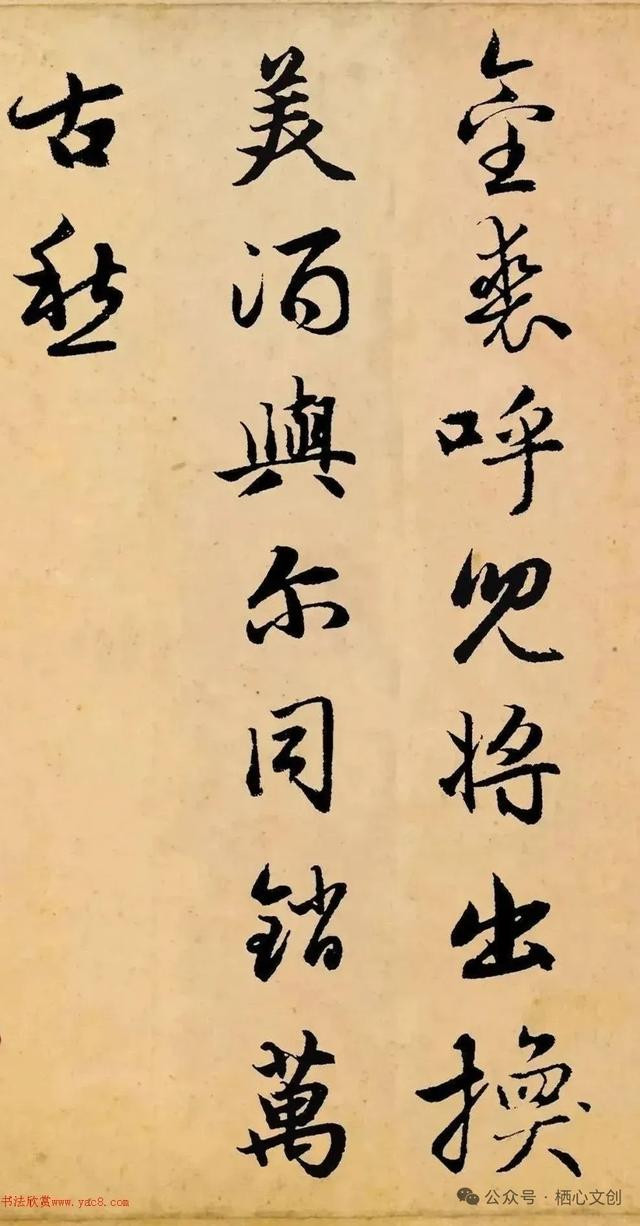 金裘呼兒將出換
美酒與尔同銷萬
古愁
书法欣赏www.yac8.com
公众号·栖心文创